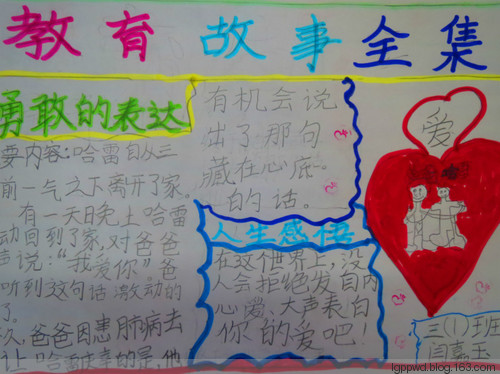 教育故事全集
勇敢的表达
要内容:哈雷自从三
前一气之下离开了家。
有一天晚上哈雷
动回到了家,对爸爸
声说:“我爱你”爸
听到这句话激动的
了。
久,爸爸因患肺病去
让哈雷庆幸的是,他
有机会说
出了那句
藏在心底
的话。
人生感悟
在这个世界上,没
人会拒绝发自内
心爱、大声表白
你的爱吧!
爱
三(1)班
闫嘉玉
lgppwd.blog.163.com